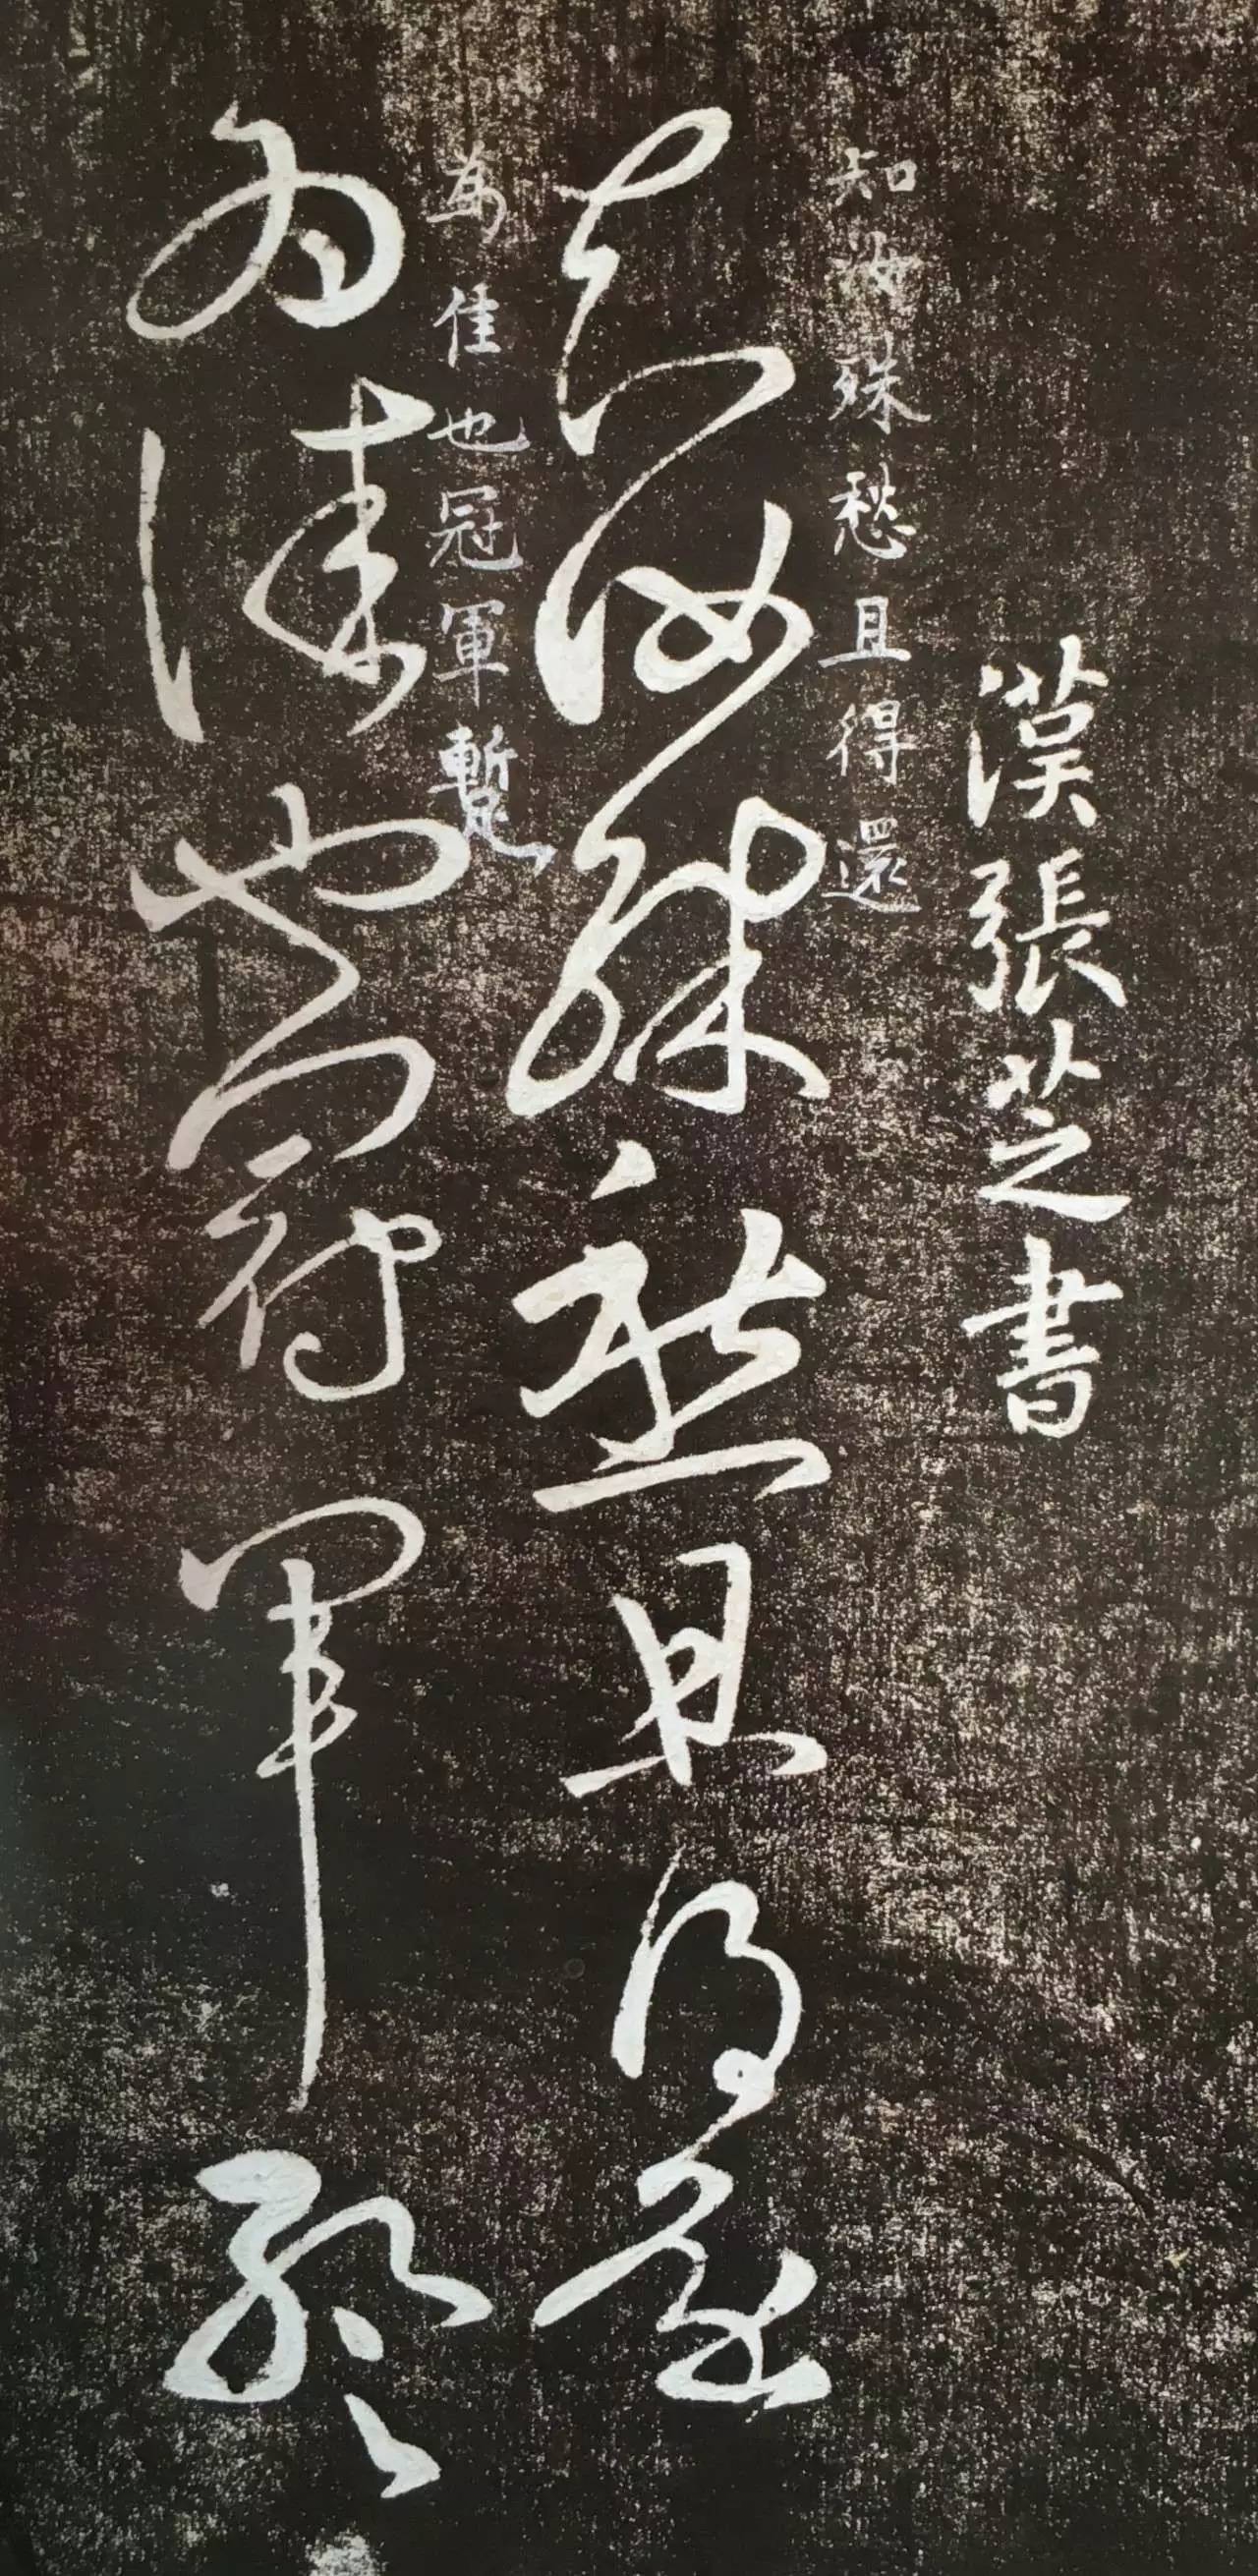 漢張芝書
知汝殊愁且得還
知汝殊愁且得還
為佳也冠軍暫
為佳也冠軍暫